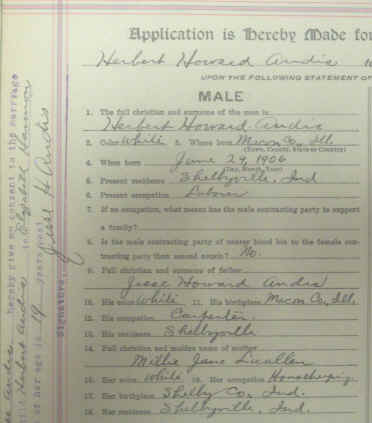 Application is Hereby Made for
Herbert Howard Andis
UPON THE FOLLOWING STATEMENT OF
MALE
1. The full christian and surname of the man is
Herbert Howard Andis
2. Color White 3. Where born Micon Co., Ill.
(Town, County, State or Country)
4. When born June 29, 1906
(Day, Month, Year)
5. Present residence Shelbyville, Ind
6. Present occupation Laborer
7. If no occupation, what means has the male contracting party to support
a family?
8. Is the male contracting party of nearer blood kin to the female con-
tracting party than second cousin? No.
9. Full christian and surname of father
Jesse Howard Andis
10. His color White 11. His birthplace Micon Co., Ill.
12. His occupation Carpenter.
13. His residence Shelbyville
14. Full christian and maiden name of mother
Millie Jane Lucallen
15. Her color White 16. Her occupation Housekeeping.
17. Her birthplace Shelby Co., Ind.
18. Her residence Shelbyville, Ind.
hereby give my consent to the marriage
Herbert Andis to Elizabeth
of her age is 19
Signature: Jesse H Andis